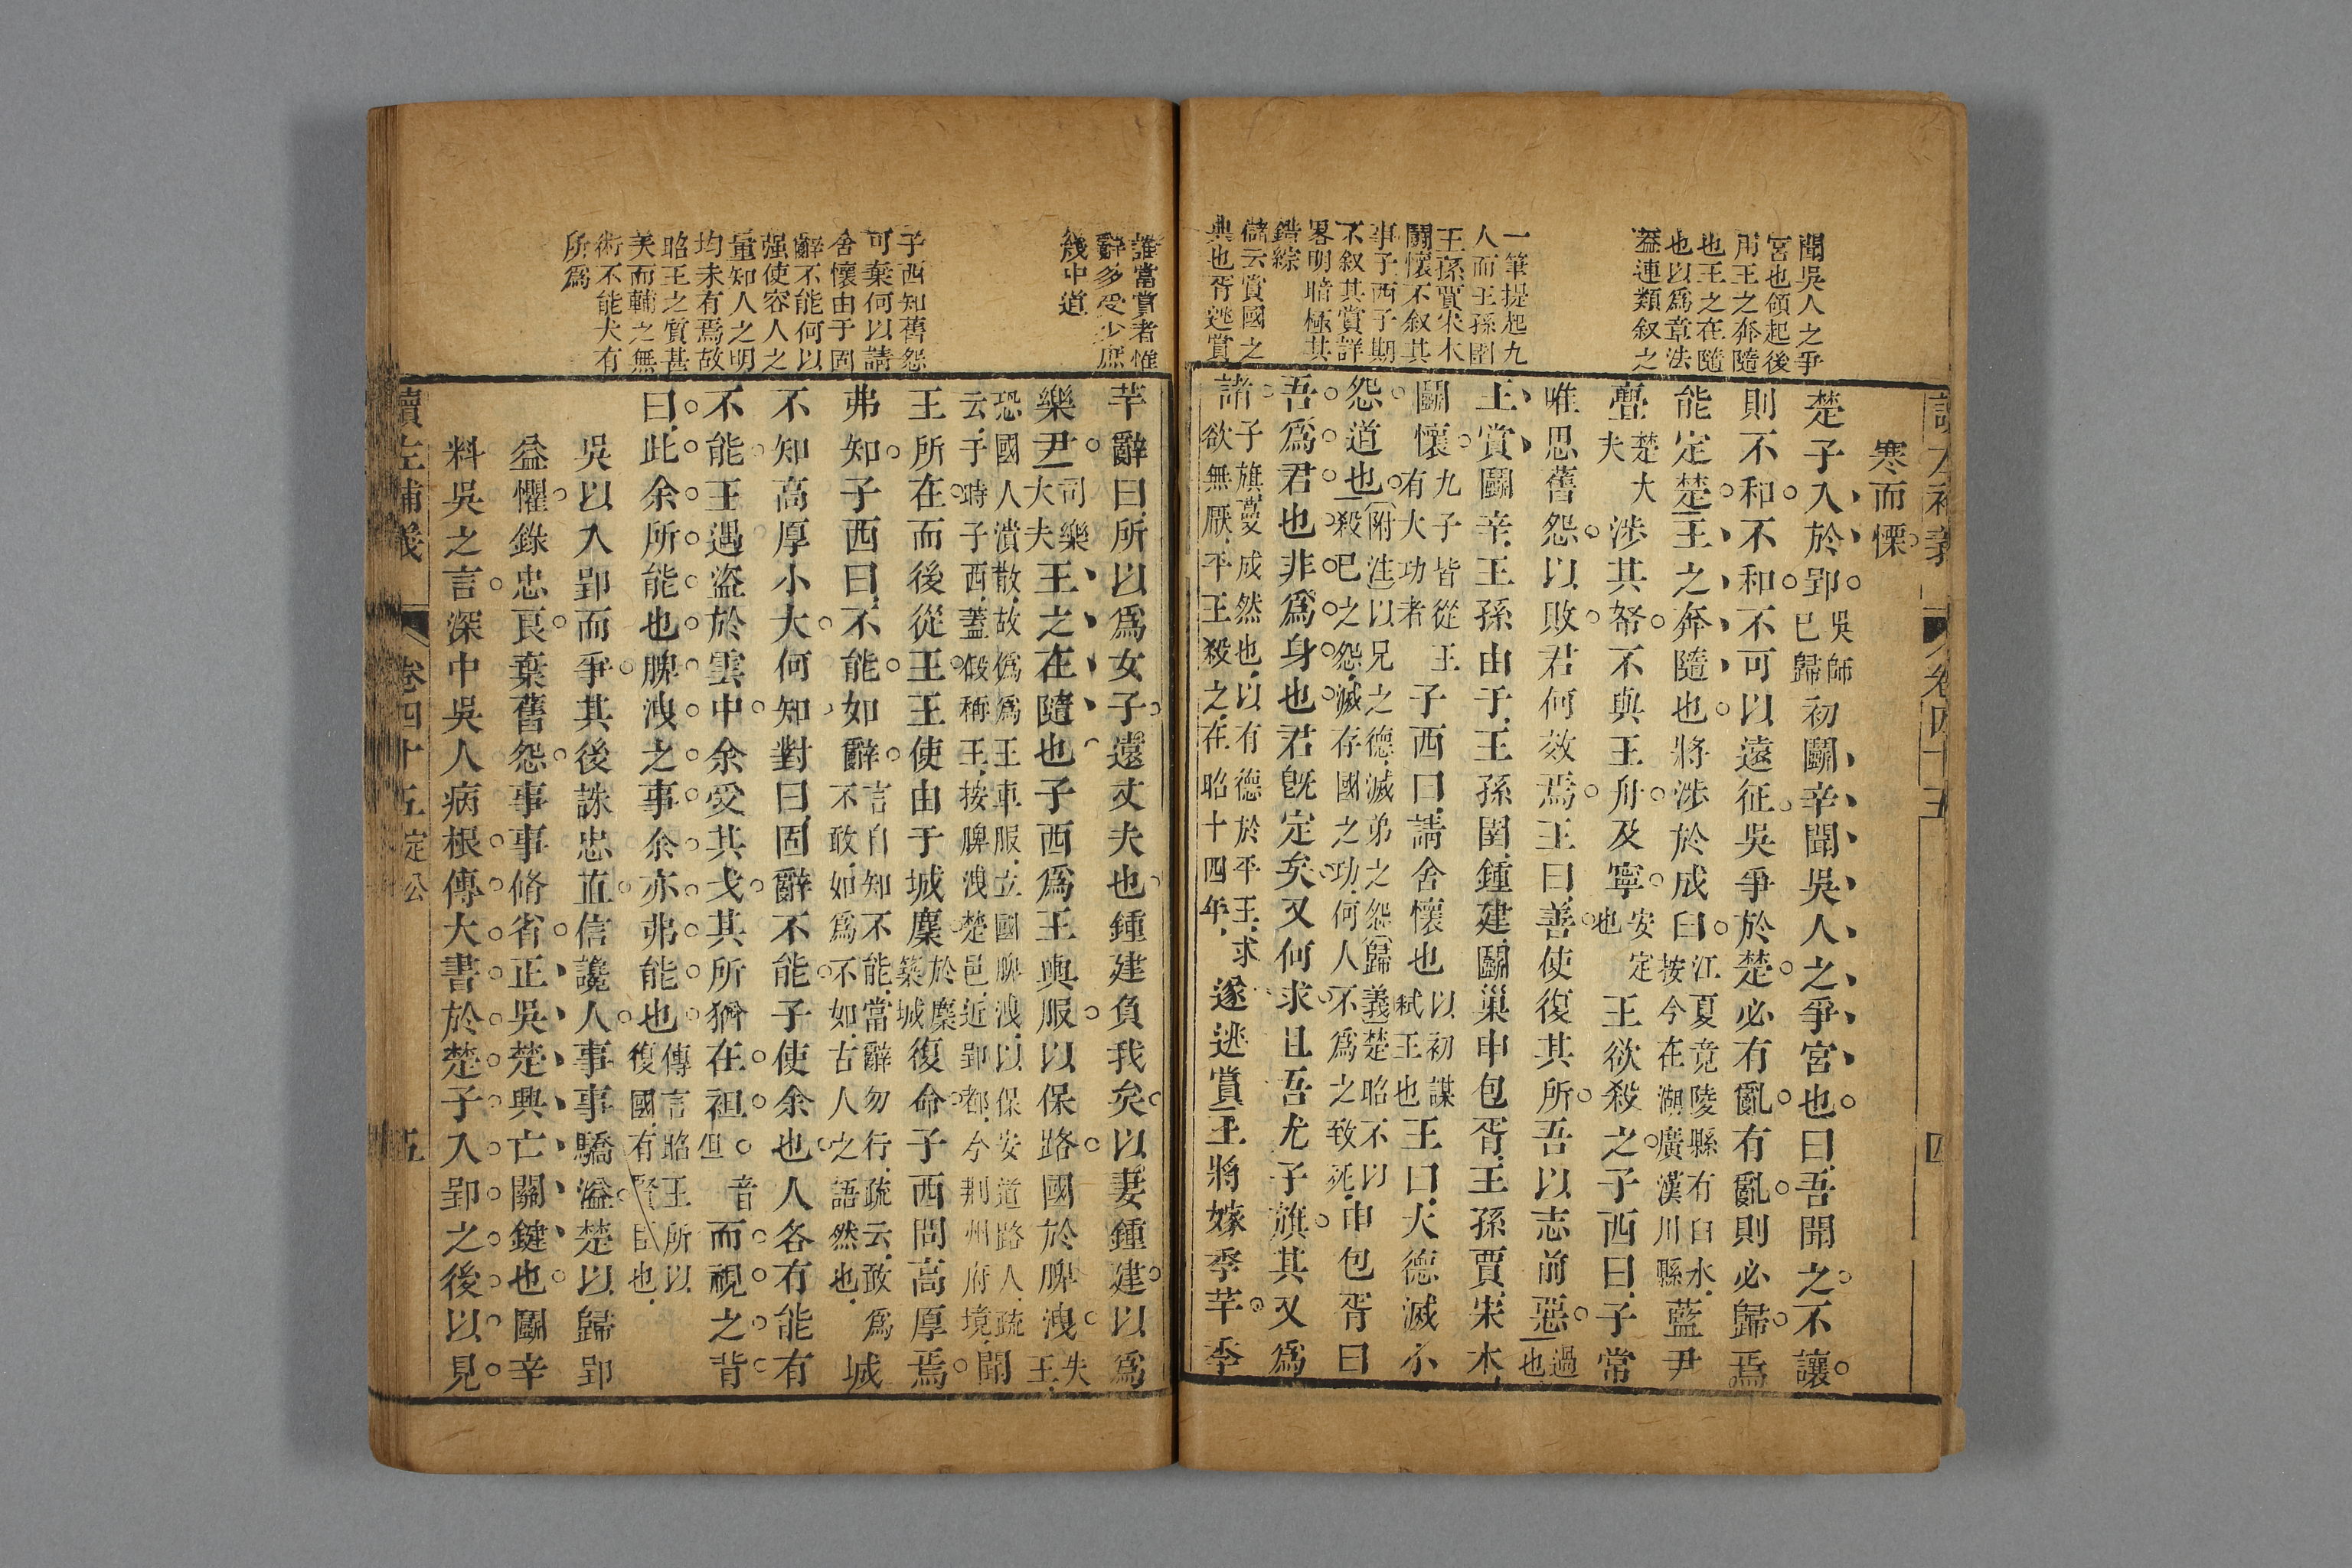 聞吳人之爭
宮也領起後
用王之奔隨
也王之在隨
也以爲章法
葢連類叙之
一筆提起九
人而王孫圉
王孫賈宋木
鬬懷不叙其
事子西子期
不叙其賞詳
畧明暗極其
錯綜
儲云賞國之
典也胥逃賞
寒而慄
楚子入於郢吳師已歸初鬬辛聞吳人之爭宮也曰吾聞之不讓
則不和不和不可以遠征吳爭於楚必有亂有亂則必歸焉
能定楚王之奔隨也將涉於成臼江夏竟陵縣有臼水按今在湖廣漢川縣藍尹
亹楚大夫涉其帑不與王舟及寧安定也王欲殺之子西曰子常
唯思舊怨以敗君何效焉王曰善使復其所吾以志前惡過也
王賞鬬辛王孫由于王孫圉鍾建鬬巢申包胥王孫賈宋木
鬬懷九子皆從王有大功者子西曰請舍懷也以初謀弒王也王曰大德滅小
怨道也附注以兄之德滅弟之怨歸義楚昭不以殺已之怨滅存國之功何人不爲之致死申包胥曰
吾爲君也非爲身也君旣定矣又何求且吾尤子旗其又爲
諸子旗蔓成然也以有德於平王求欲無厭平王殺之在昭十四年遂逃賞王將嫁季芊季
讀左補義 卷四十五 四
誰當賞者惟
辭多受少庶
幾中道
子西知舊怨
可棄何以請
舍懷由于固
辭不能何以
强使容人之
量知人之明
均未有焉故
昭王之質甚
美而輔之無
術不能大有
所爲
芊辭曰所以爲女子遠丈夫也鍾建負我矣以妻鍾建以爲
樂尹司樂大夫王之在隨也子西爲王輿服以保路國於脾洩失王
恐國人潰散故僞爲王車服立國脾洩以保安道路人疏云于時子西蓋假稱王按脾洩楚邑近郢都今荆州府境聞
王所在而後從王王使由于城麇於麇築城復命子西問高厚焉
弗知子西曰不能如辭言自知不能當辭勿行疏云敢爲不敢如爲不如古人之語然也城
不知高厚小大何知對曰固辭不能子使余也人各有能有
不能王遇盜於雲中余受其戈其所猶在袒但音而視之背
曰此余所能也脾洩之事余亦弗能也傳言昭王所以復國有賢臣也
吳以入郢而爭其後誅忠直信讒人事事驕溢楚以歸郢
益懼錄忠良棄舊怨事事脩省正吳楚興亡關鍵也鬬辛
料吳之言深中吳人病根傳大書於楚子入郢之後以見
讀左補義 卷四十五 定公 五